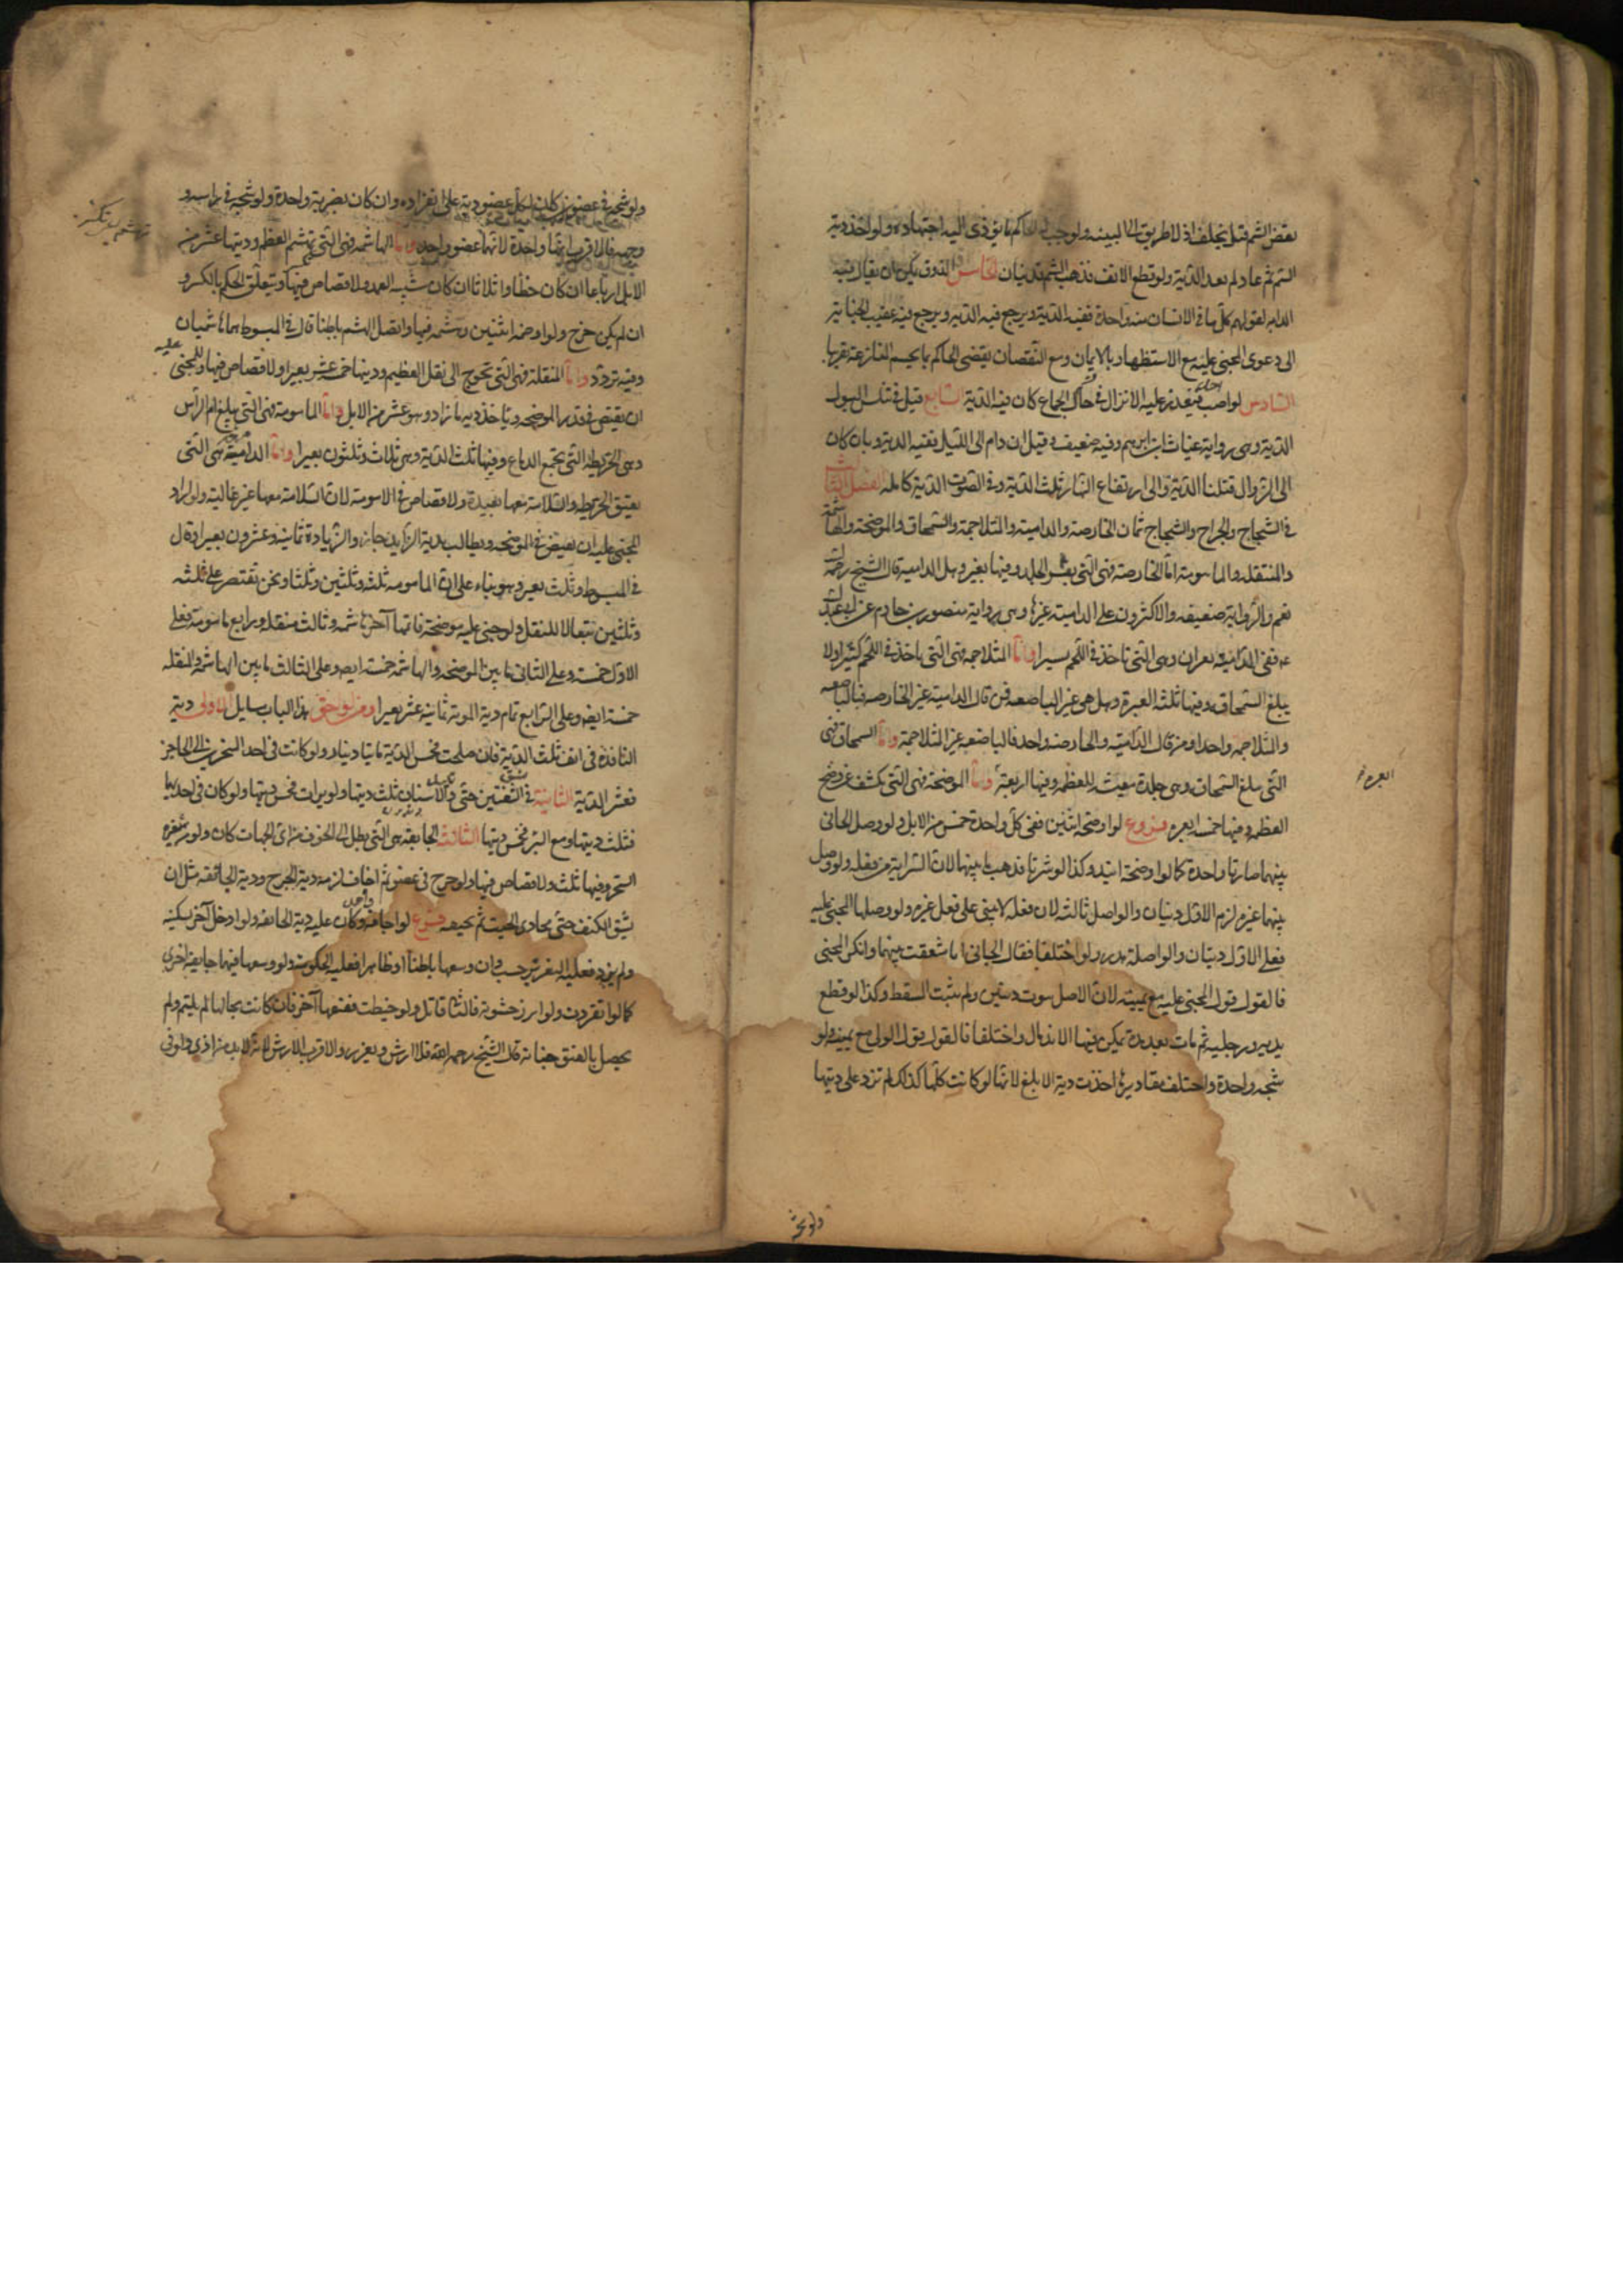 نقض الشم قيل يحلف اذ لا طريق الى البينه ويوجب له الحاكم ما يؤدى اليه اجتهاده ولو اخذ دية
الشم ثم عاد لم يعد الدية ولو قطع الانف فذهب الشم فديتان الخامس الذوق يمكن ان يقال فيه
الدية لقولهم كل ما في الانسان منه واحدة ففيه الدية ويرجع فيه عقيب الجناية
الى دعوى المجنى عليه مع الاستظهار بالايمان ومع النقصان يقضى الحاكم بما يحسم المنازعة تقريبا
السادس لو اصيب فتعذر عليه الانزال في حال الجماع كان فيه الدية السابع قيل في سلس البول
الدية وهى رواية غياث ابن ابرهيم وفيه ضعيف وقيل ان دام الى الليل ففيه الدية وان كان
الى الزوال فثلثا الدية والى ارتفاع النهار ثلث الدية وفي الصوت الدية كامله الفصل الثالث
في الشجاج والجراح والشجاج ثمان الخارصة والدامية والمتلاحمة والسمحاق والموضحة والهاشمة
والمنقلة والمامومة اما الخارصة فهى التى تقشر الجلد وفيها بعير وهل الدامية قال الشيخ رحمه الله
نعم والرواية ضعيفه والاكثرون على ان الدامية غيرها وهى رواية منصور بن حازم عن ابى عبد الله
عه ففى الدامية بعيران وهى التى تاخذ في اللحم يسيرا واما المتلاحمه فهى التى تاخذ في اللحم كثيرا ولا
يبلغ السمحاق وفيها ثلثه ابعرة وهل هى غير الباضعه فمن قال الدامية غير الخارصه فالباضعه
والمتلاحمه واحد ومن قال الدامية والخارصه واحد فالباضعه غير المتلاحمة واما السمحاق فهى
التى تبلغ السمحاق وهى جلدة مغشية للعظم وفيها اربعة واما الموضحة فهى التى تكشف عن وضح
العظم وفيها خمسة ابعرة فروع لو اوضحه اثنتين ففى كل واحدة خمس من الابل ولو وصل الجانى
بينهما صارتا واحدة كما لو اوضحه ابتداء وكذا لو سرتا فذهب ما بينهما لان السراية من فعله ولو وصل
بينهما غيره لزم الاول ديتان والواصل ثالثه لان فعله لا يبنى على فعل غيره ولو وصلها المجنى عليه
فعلى الاول ديتان والواصلة هدر ولو اختلفا فقال الجانى انا شققت بينهما وانكر المجنى
فالقول قول المجنى عليه مع يمينه لان الاصل ثبوت ديتين ولم يثبت المسقط وكذا لو قطع
يديه ورجليه ثم مات بعد مدة يمكن فيها الاندمال واختلفا فالقول قول الولى مع يمينه ولو
شجه واحدة واختلف مقاديرها اخذت دية الابلغ لانها لو كانت كلها كذلك لم تزد على ديتها
ولو شجه
ولو شجه في عضوين كان لكل عضو دية على انفراده وان كان بضربة واحدة ولو شجه في راسه و
وجهه فالاقرب انها واحدة لانهما عضو واحد واما الهاشمه فهى التى تهشم العظم وديتها عشر من
الابل ارباعا ان كان خطأ واثلاثا ان كان شبيه العمد ولا قصاص فيها ويتعلق الحكم بالكسر و
ان لم يكن جرح ولو اوضحه اثنتين وهشمه فيهما واتصل الهشم باطنا قال في المبسوط هما هاشمتان
وفيه تردد واما المنقلة فهى التى تحوج الى نقل العظم وديتها خمسة عشر بعيرا ولا قصاص فيها وللمجنى عليه
ان يقتص في قدر الموضحه وياخذ دية ما زاد وهو عشر من الابل واما المامومة فهى التى تبلغ ام الراس
وهى الخريطه التى تجمع الدماغ وفيها ثلث الدية وهى ثلاث وثلثون بعيرا واما الدامغة فهى التى
تفتق الخريطه والسلامة معها بعيدة ولا قصاص في المامومة لان السلامة معها غير غالبة ولو اراد
المجنى عليه ان يقتص في الموضحه ويطالب بدية الزايد جاز والزيادة ثمانية وعشرون بعيرا وقال
في المبسوط وثلث بعير وهو بناء على ان المامومه ثلث وثلثين وثلثا ونحن نقتصر على ثلثه
وثلثين تبعا للنقل ولو جنى عليه موضحة فاتمها آخر هاشمه وثالث منقله ورابع مامومة فعلى
الاول خمسة وعلى الثانى ما بين الموضحه والهاشمه خمسة ايضا وعلى الثالث ما بين الهاشمه والمنقله
خمسة ايضا وعلى الرابع تمام دية المامومة ثمانية عشر بعيرا ومن لواحق هذا الباب مسايل الاولى دية
النافذة في الانف ثلث الدية فان صلحت فخمس الدية مايتا دينار ولو كانت في احد المنخرين الى الحاجز
فعشر الدية الثانية في شق الشفتين حتى تبدو الاسنان ثلث ديتها ولو برات فخمس ديتها ولو كان في احديهما
فثلث ديتها ومع البرء فخمس ديتها الثالثة الجايفة هى التى تصل الى الجوف من اى الجهات كان ولو من ثغرة
النحر وفيها ثلث ولا قصاص فيها ولو جرح في عضو ثم اجاف لزمه دية الجرح ودية الجائفه مثل ان
يشق الكتف حتى يحاذى الجنب ثم يجيفه فروع لو اجافه واحد كان عليه دية الجائفه ولو ادخل آخر سكينه
ولم يزد فعليه التعزير حسب وان وسعها باطنا او ظاهرا ففيه الحكومة ولو وسعها فيهما فهى جايفة اخرى
كما لو انفردت ولو ابرز حشوته فالثانى قاتل ولو خيطت ففتقها آخر فان كانت بحالها لم يلتئم ولم
يحصل بالفتق جناية قال الشيخ رحمه الله فلا ارش ويعزر والاقرب الارش لانه لا بد من اذى ولو فى